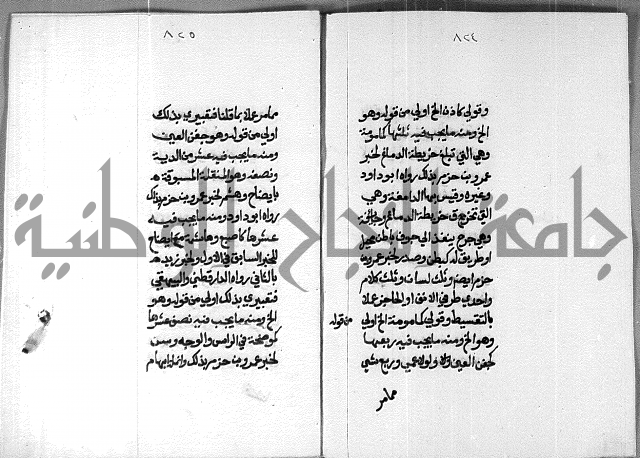 ٨٢٤
وقولي كاذن الخ اولي من قوله وهو
الخ ومنه ما يجب فيه ثلثها كمامومة
وهي التي تبلغ خريطة الدماغ لخبر
عمرو بن حزم بذلك رواه ابو داود
وغيره وقيس بها الدامغة وهي
التي تخرق خريطة الدماغ وجائفة
وهي جرح ينفذ الى جوف باطن محيل
او طريق له كبطن وصدر لخبر عمرو بن
حزم ايضا وثلث لسان وثلث كلام
واحدي طرفي الانف او الحاجز عملا
بالتقسيط وقولي كمامومة الخ اولي
من قوله
وهو الخ ومنه ما يجب فيه ربعها
كجفن العين ولو لاعمي وربع شيي
مما مر
٨٢٥
مما مر عملا بما قلنا فتعبيري بذلك
اولي من قوله وهو جفن العين
ومنه ما يجب فيه عشر من الدية
ونصفه وهو المنقلة المسبوقة
بايضاح وهشم لخبر عمرو بن حزم بذلك
رواه ابو داود ومنه ما يجب فيه
عشرها كاصبع وهاشمة مع ايضاح
للخبر السابق في الاول ولخبر زيد
بالثاني رواه الدارقطني والبيهقي
فتعبيري بذلك اولي من قوله وهو
الخ ومنه ما يجب فيه نصف عشرها
كموضحة في الراس والوجه وسن
لخبر عمرو بن حزم بذلك وانما ابهام
جامعة النجاح الوطنية